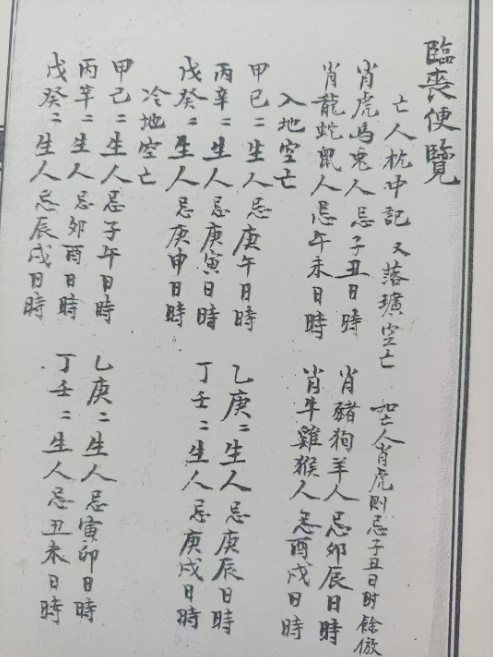 臨喪便覽
亡人枕中記 又落壙空亡 如亡人肖虎則忌子丑日时餘倣
肖虎馬兎人忌子丑日時 肖豬狗羊人忌卯辰日時
肖龍蛇鼠人忌午未日時 肖牛雞猴人忌酉戌日時
入地空亡
甲己二生人忌庚午日時 乙庚二生人忌庚辰日時
丙辛二生人忌庚寅日時 丁壬二生人忌庚戌日時
戊癸二生人忌庚申日時
冷地空亡
甲己二生人忌子午日時 乙庚二生人忌寅卯日時
丙辛二生人忌卯酉日時 丁壬二生人忌丑未日時
戊癸二生人忌辰戌日時